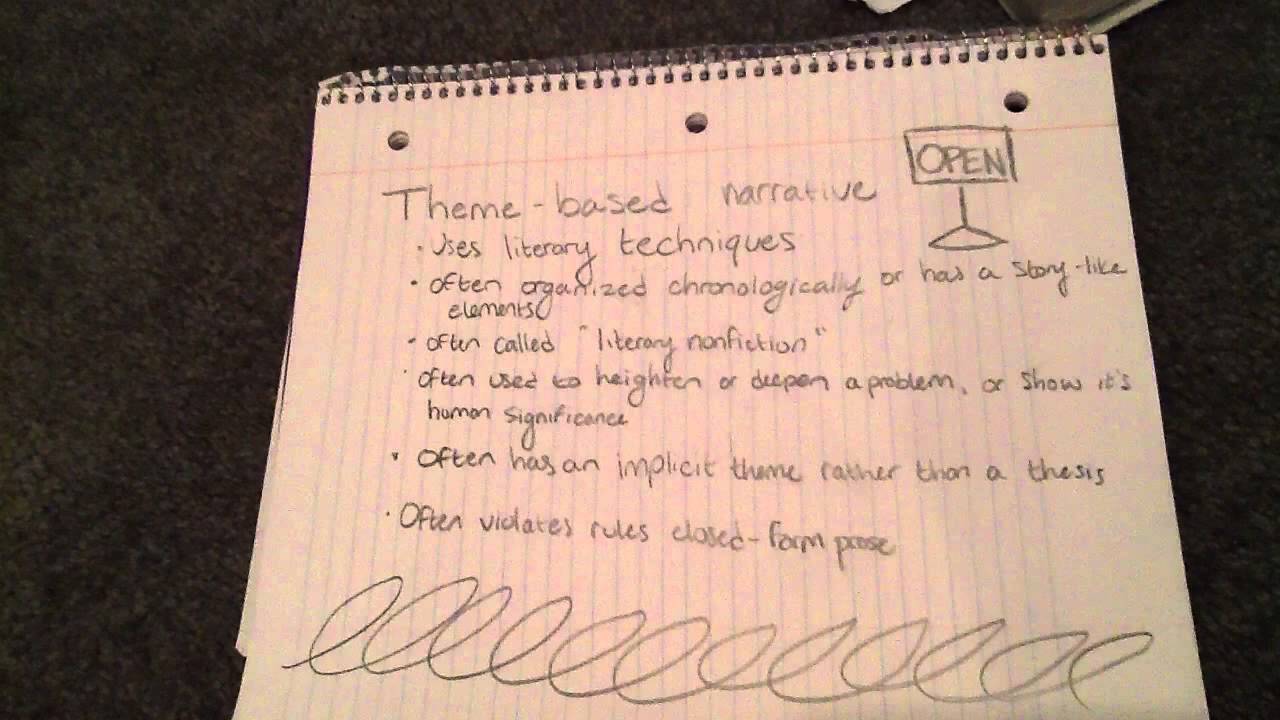 OPEN
Theme-based narrative
· Uses literary techniques
· Often organized chronologically or has a story-like
elements
· Often called "literary nonfiction"
· Often used to heighten or deepen a problem, or show it's
human significance
· Often has an implicit theme rather than a thesis
· Often violates rules closed-form prose